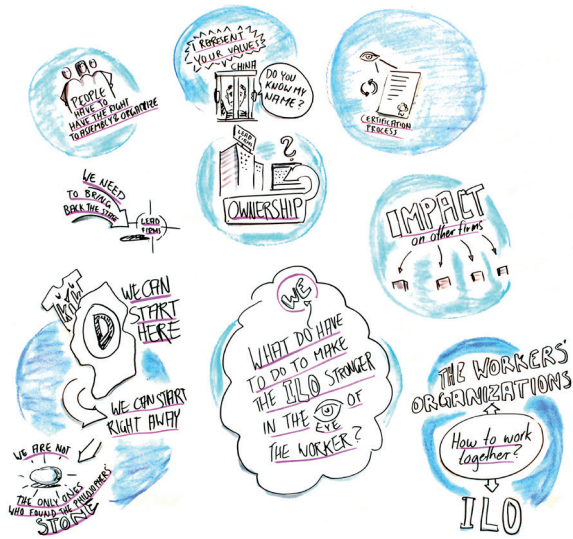 PEOPLE
HAVE TO
HAVE THE RIGHT
TO ASSEMBLY & ORGANIZE
I REPRESENT
YOUR VALUES
CHINA
DO YOU
KNOW MY
NAME?
LEAD
FIRM
?
OWNERSHIP
CERTIFICATION
PROCESS
WE NEED
TO BRING
BACK THE STATE
LEAD
FIRMS
IMPACT
on other firms
WE CAN
START
HERE
D
WE CAN START
RIGHT AWAY
WE ARE NOT
THE ONLY ONES
WHO FOUND THE PHILOSOPHERS'
STONE
WE
WHAT DO HAVE
TO DO TO MAKE
THE ILO STRONGER
IN THE EYE OF
THE WORKER?
THE WORKERS'
ORGANIZATIONS
How to work
together?
ILO